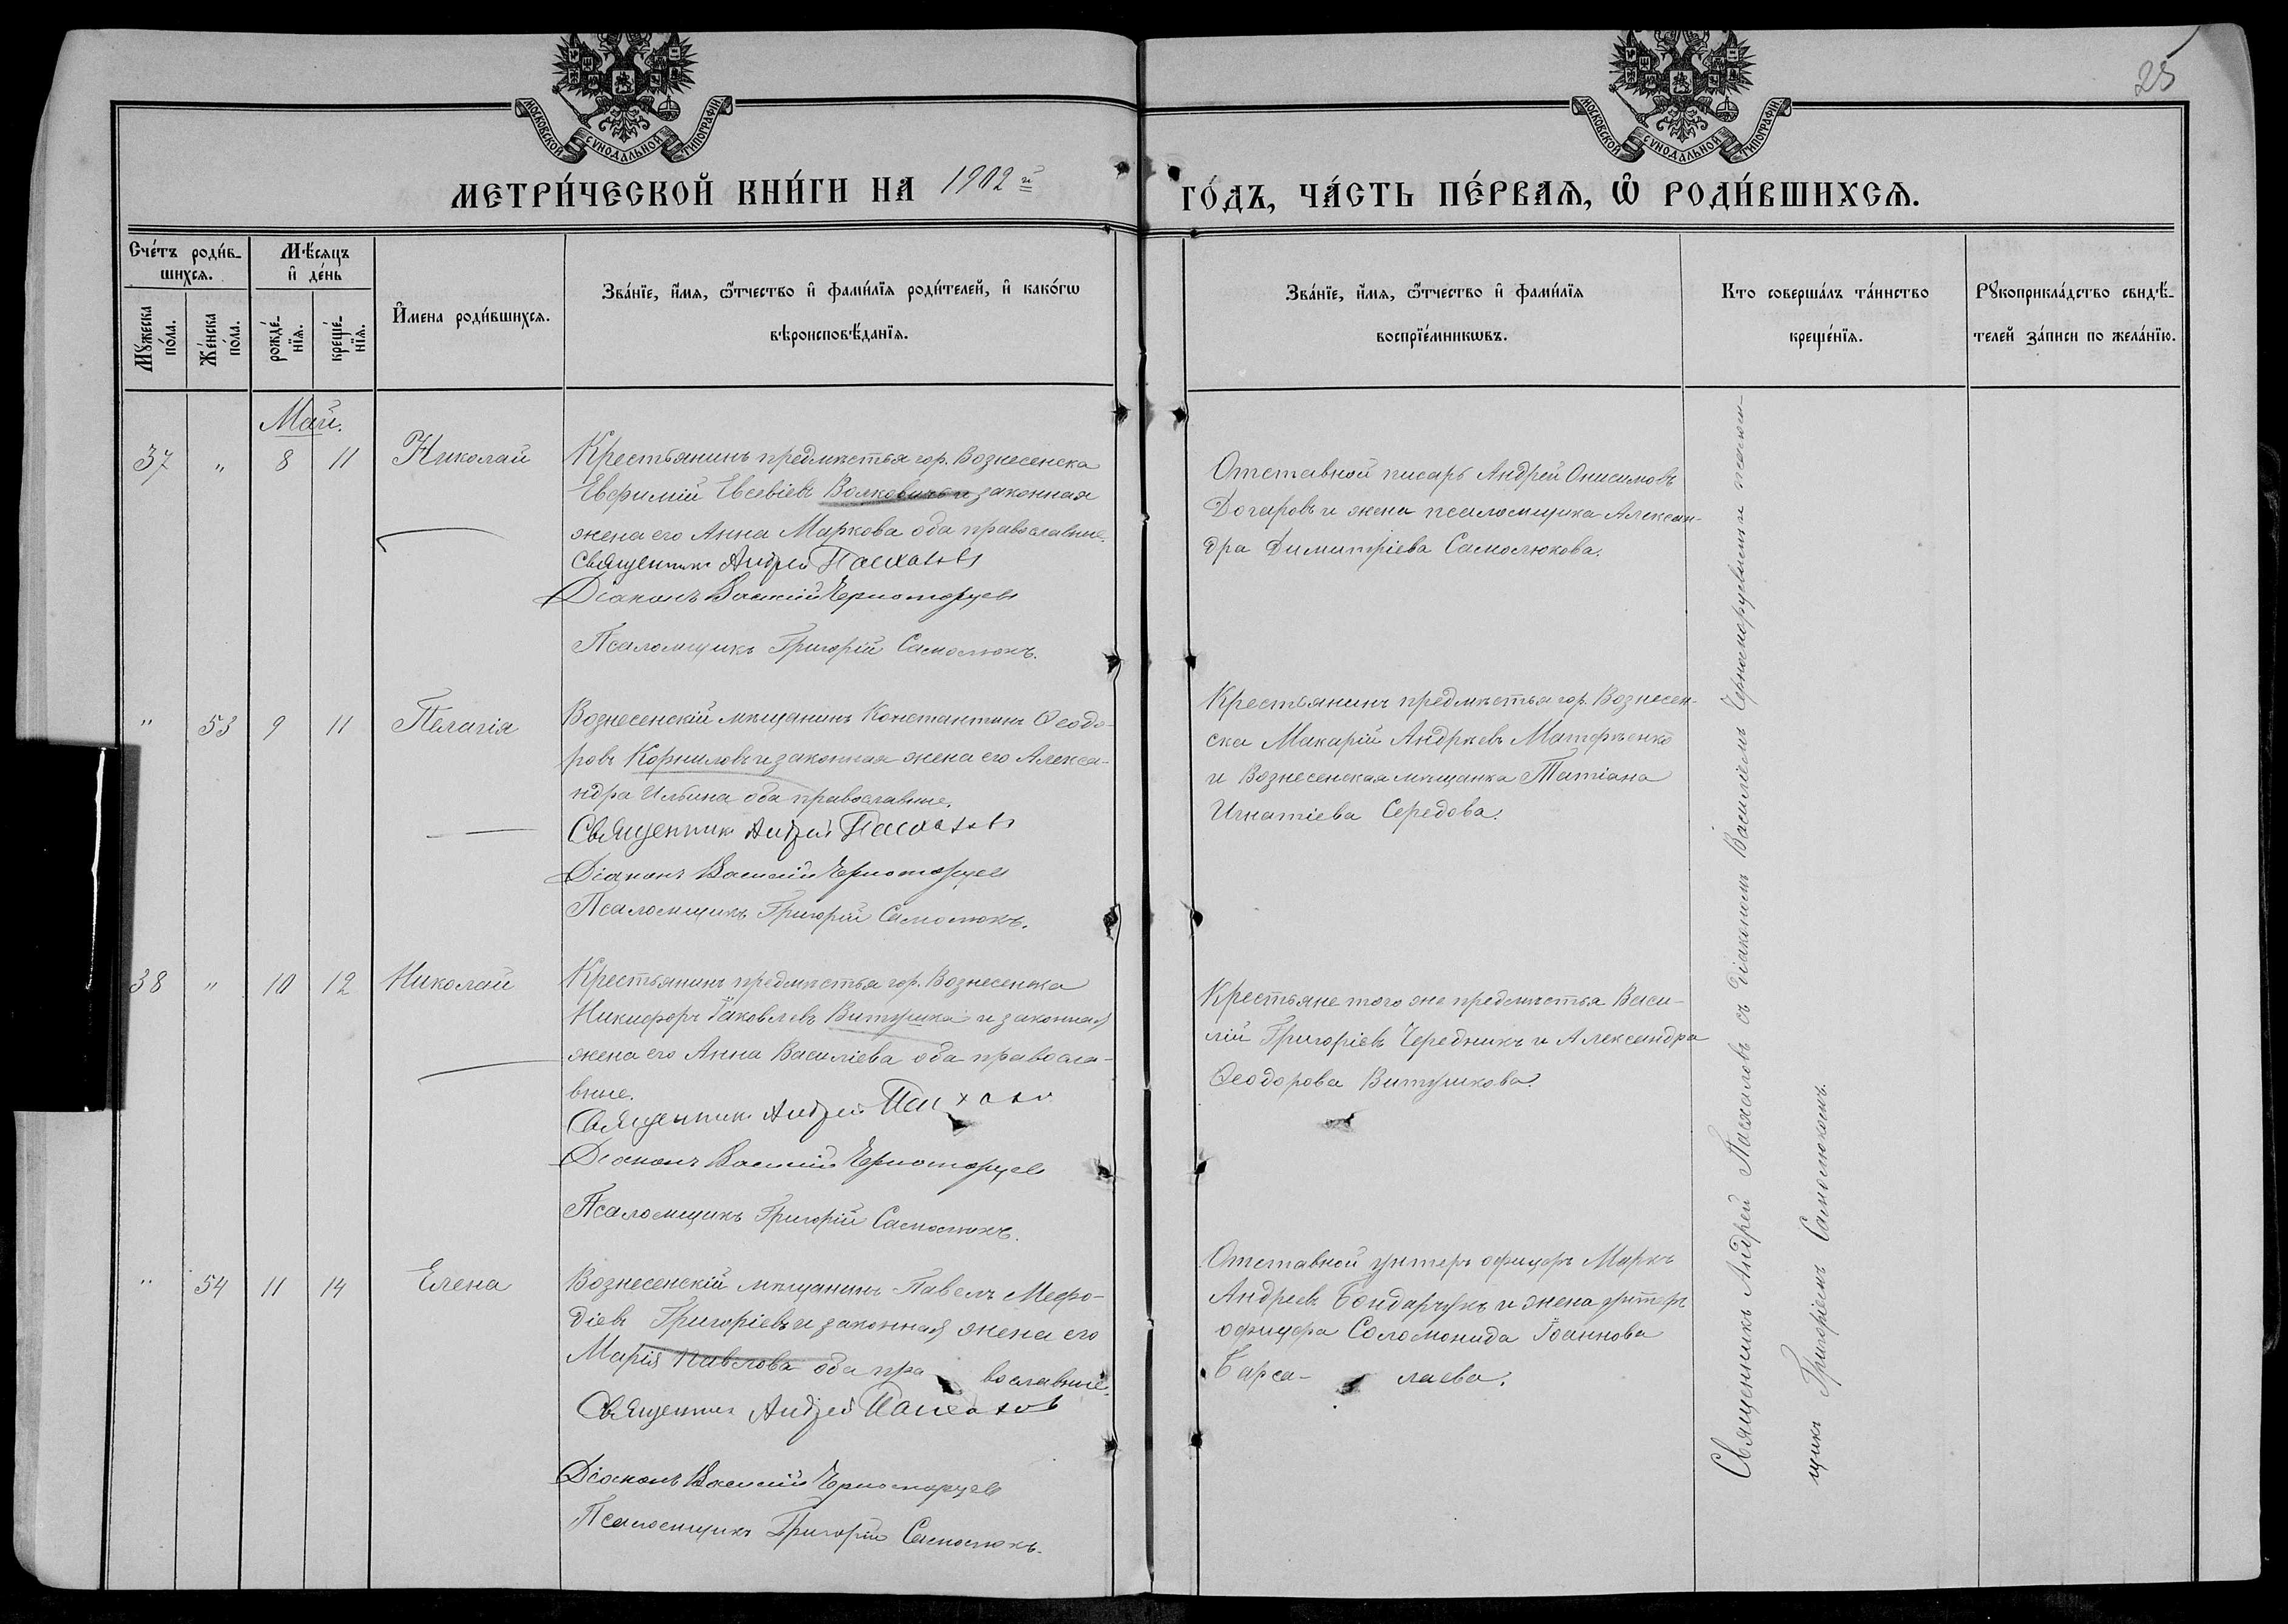 МОСКОВСКОЙ СѴНОДАЛЬНОЙ ТИПОГРАФІИ
МОСКОВСКОЙ СѴНОДАЛЬНОЙ ТИПОГРАФІИ
25
МЕТРИ́ЧЕСКОЙ КНИ́ГИ НА 1902 й
ГО́ДЪ, ЧА́СТЬ ПЕ́РВАЯ, Ѡ РОДИ́ВШИХСЯ.
Сче́тъ роди́в-
шихся.
Мꙋ́жеска по́ла.
Же́нска по́ла.
Мѣ́сяцъ
и҆ де́нь
рожде́-
нїя.
креще́-
нїя.
И҆мена роди́вшихся.
Зва́нїе, и҆́мя, ѻ҆́тчество и҆ фами́лїя роди́телей, и҆ како́гѡ
вѣроисповѣ́данїя.
Зва́нїе, и҆́мя, ѻ҆́тчество и҆ фами́лїя
воспрїе́мникѡвъ.
Кто соверша́лъ та́инство
креще́нїя.
Рꙋкоприкла́дство свидѣ́-
телей за́писи по жела́нїю.
Май.
37 " 8 11 Николай
Крестьянинъ предмѣстья гор. Вознесенска
Евфимій Евсевіевъ Волковичъ и законная
жена его Анна Маркова оба православные.
Священникъ Андрей Пасхаловъ
Діаконъ Василій Черноморцевъ
Псаломщикъ Григорій Самолюкъ.
Отставной писарь Андрей Онисимовъ
Догаровъ и жена псаломщика Алексан-
дра Димитріева Самолюкова.
" 53 9 11 Пелагія
Вознесенскій мѣщанинъ Константинъ Ѳеодо-
ровъ Корниловъ и законная жена его Алекса-
ндра Ильина оба православные.
Священникъ Андрей Пасхаловъ
Діаконъ Василій Черноморцевъ
Псаломщикъ Григорій Самолюкъ.
Крестьянинъ предмѣстья гор. Вознесен-
ска Макарій Андреевъ Матфѣенко
и Вознесенская мѣщанка Татіана
Игнатіева Середова.
38 " 10 12 Николай
Крестьянинъ предмѣстья гор. Вознесенска
Никифоръ Іаковлевъ Витушка и законная
жена его Анна Василіева оба правосла-
вные.
Священникъ Андрей Пасхаловъ
Діаконъ Василій Черноморцевъ
Псаломщикъ Григорій Самолюкъ.
Крестьяне того же предмѣстья Васи-
лій Григоріевъ Чередникъ и Александра
Ѳеодорова Витушкова.
" 54 11 14 Елена
Вознесенскій мѣщанинъ Павелъ Мефо-
діевъ Григоріевъ и законная жена его
Марія Павлова оба православные.
Священникъ Андрей Пасхаловъ
Діаконъ Василій Черноморцевъ
Псаломщикъ Григорій Самолюкъ.
Отставной унтеръ офицеръ Маркъ
Андреевъ Бондарчукъ и жена унтеръ
офицера Соломонида Іоаннова
Барса-лаева.
Священникъ Андрей Пасхаловъ съ діакономъ Василіемъ Черноморцевымъ и псалом-
щикъ Григоріемъ Самолюкомъ.